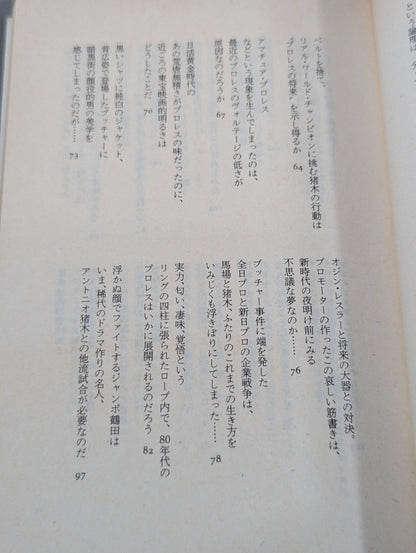 ベルトを捨て、
リアル・ワールド・チャンピオンに挑む猪木の行動は
“プロレスの将来”を示し得るか 64
アマチュア・プロレス
などという現象を生んでしまったのは、
最近のプロレスのヴォルテージの低さが
原因なのだろうか 67
日活黄金時代の
あの荒唐無稽さがプロレスの味だったのに、
近ごろの東宝映画的明るさは
どうしたことだ 70
黒いシャツに純白のジャケット、
背広姿で登場したブッチャーに
暗黒街の顔役的男の美学を
感じてしまったのだが…… 73
オジン・レスラーと将来の大器との対決。
プロモーターの作ったこの哀しい筋書きは、
新時代の夜明け前にみる
不思議な夢なのか…… 76
ブッチャー事件に端を発した
全日プロと新日プロの企業戦争は、
馬場と猪木、ふたりのこれまでの生き方を
いみじくも浮きぼりにしてしまった…… 78
実力、匂い、凄味、覚悟という
リングの四柱に張られたロープ内で、80年代の
プロレスはいかに展開されるのだろう 82
浮かぬ顔でファイトするジャンボ鶴田は
いま、稀代のドラマ作りの名人、
アントニオ猪木との他流試合が必要なのだ 97